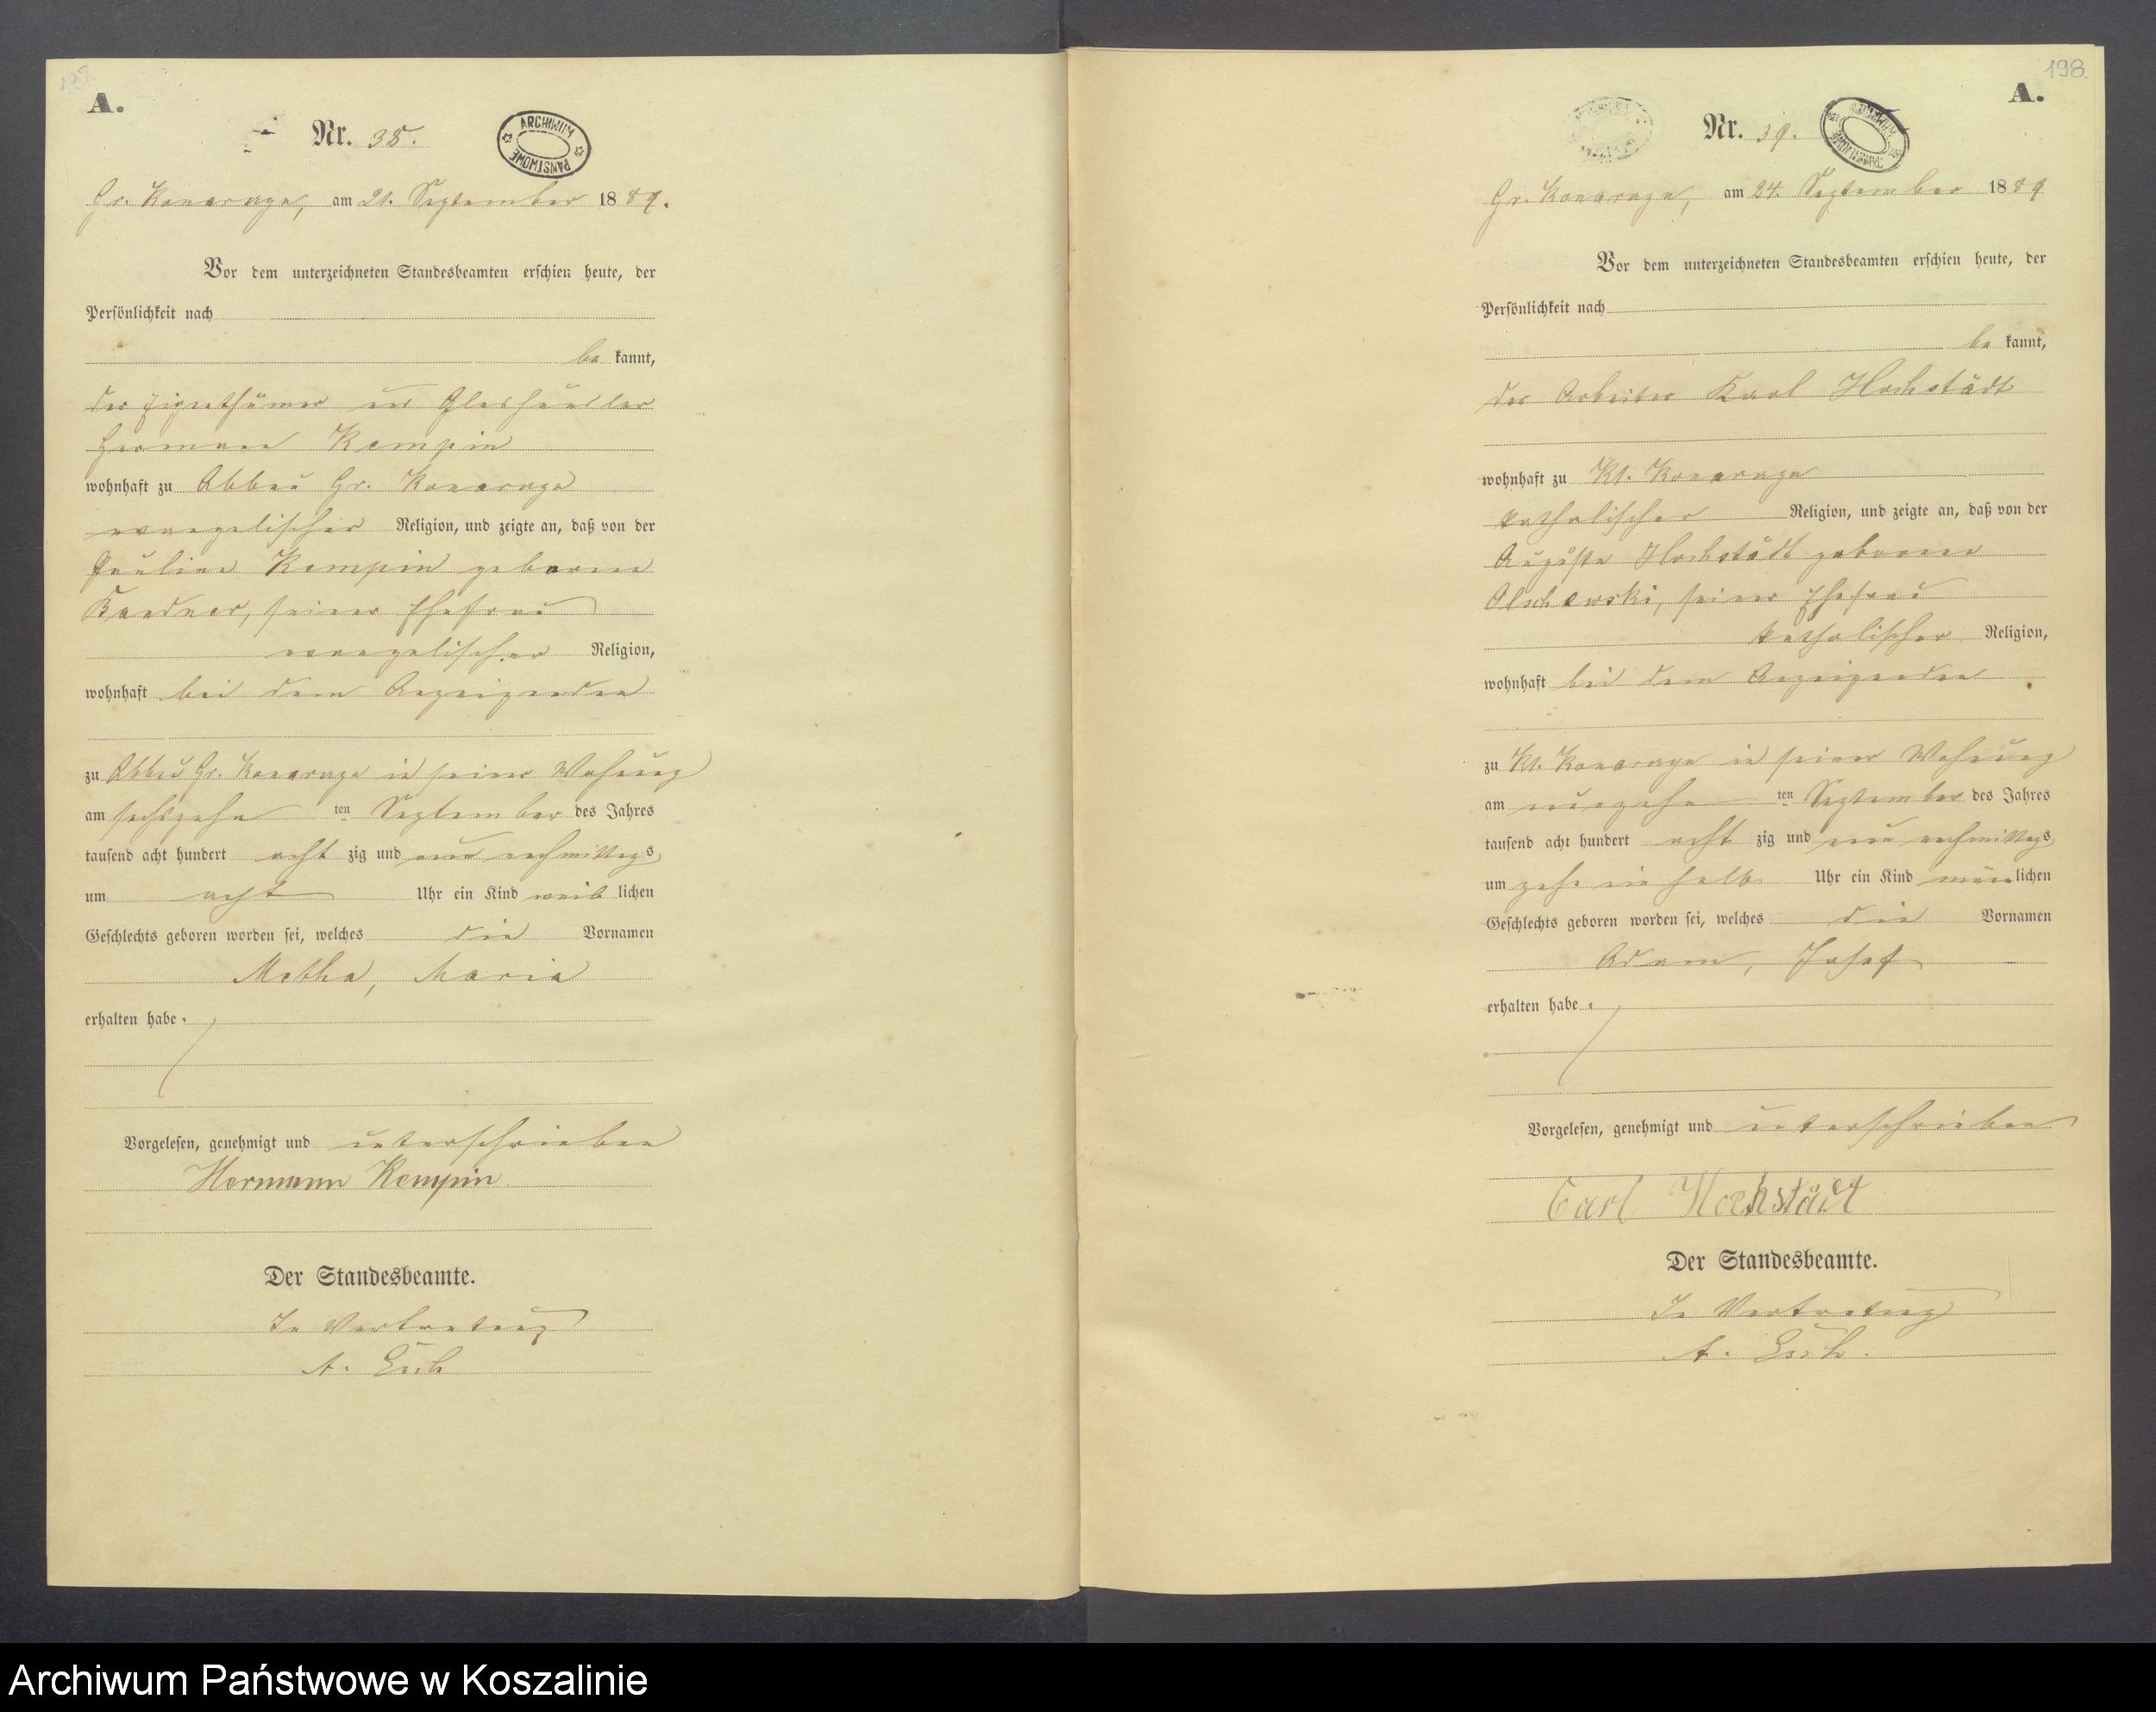 A.
Nr. 38.
ARCHIWUM PAŃSTWOWE
Gr. Konarzyn, am 21. September 1889.
Vor dem unterzeichneten Standesbeamten erschien heute, der
Persönlichkeit nach
be kannt,
der Eigenthümer und Glashändler
Hermann Kempin
wohnhaft zu Abbau Gr. Konarzyn
evangelischer Religion, und zeigte an, daß von der
Pauline Kempin geborene
seiner Ehefrau
evangelischer Religion,
wohnhaft bei dem Anzeigenden
zu Abbau Gr. Konarzyn in seiner Wohnung
am sechszehn ten September des Jahres
tausend acht hundert acht zig und neun nachmittags
um acht Uhr ein Kind weib lichen
Geschlechts geboren worden sei, welches die Vornamen
Maria
erhalten habe.
Vorgelesen, genehmigt und unterschrieben
Hermann Kempin
Der Standesbeamte.
In Vertretung
A.
198.
A.
Nr. 39.
ARCHIWUM PAŃSTWOWE
Gr. Konarzyn, am 24. September 1889
Vor dem unterzeichneten Standesbeamten erschien heute, der
Persönlichkeit nach
be kannt,
der Arbeiter Karl Hochstädt
wohnhaft zu Kl. Konarzyn
katholischer Religion, und zeigte an, daß von der
Auguste Hochstädt geborene
Olschewski, seiner Ehefrau
katholischer Religion,
wohnhaft bei dem Anzeigenden
zu Kl. Konarzyn in seiner Wohnung
am neunzehn ten September des Jahres
tausend acht hundert acht zig und neun nachmittags
um zehn ein halb Uhr ein Kind männlichen
Geschlechts geboren worden sei, welches die Vornamen
Adam, Josef
erhalten habe.
Vorgelesen, genehmigt und unterschrieben
Carl Hochstädt
Der Standesbeamte.
In Vertretung
A.
Archiwum Państwowe w Koszalinie